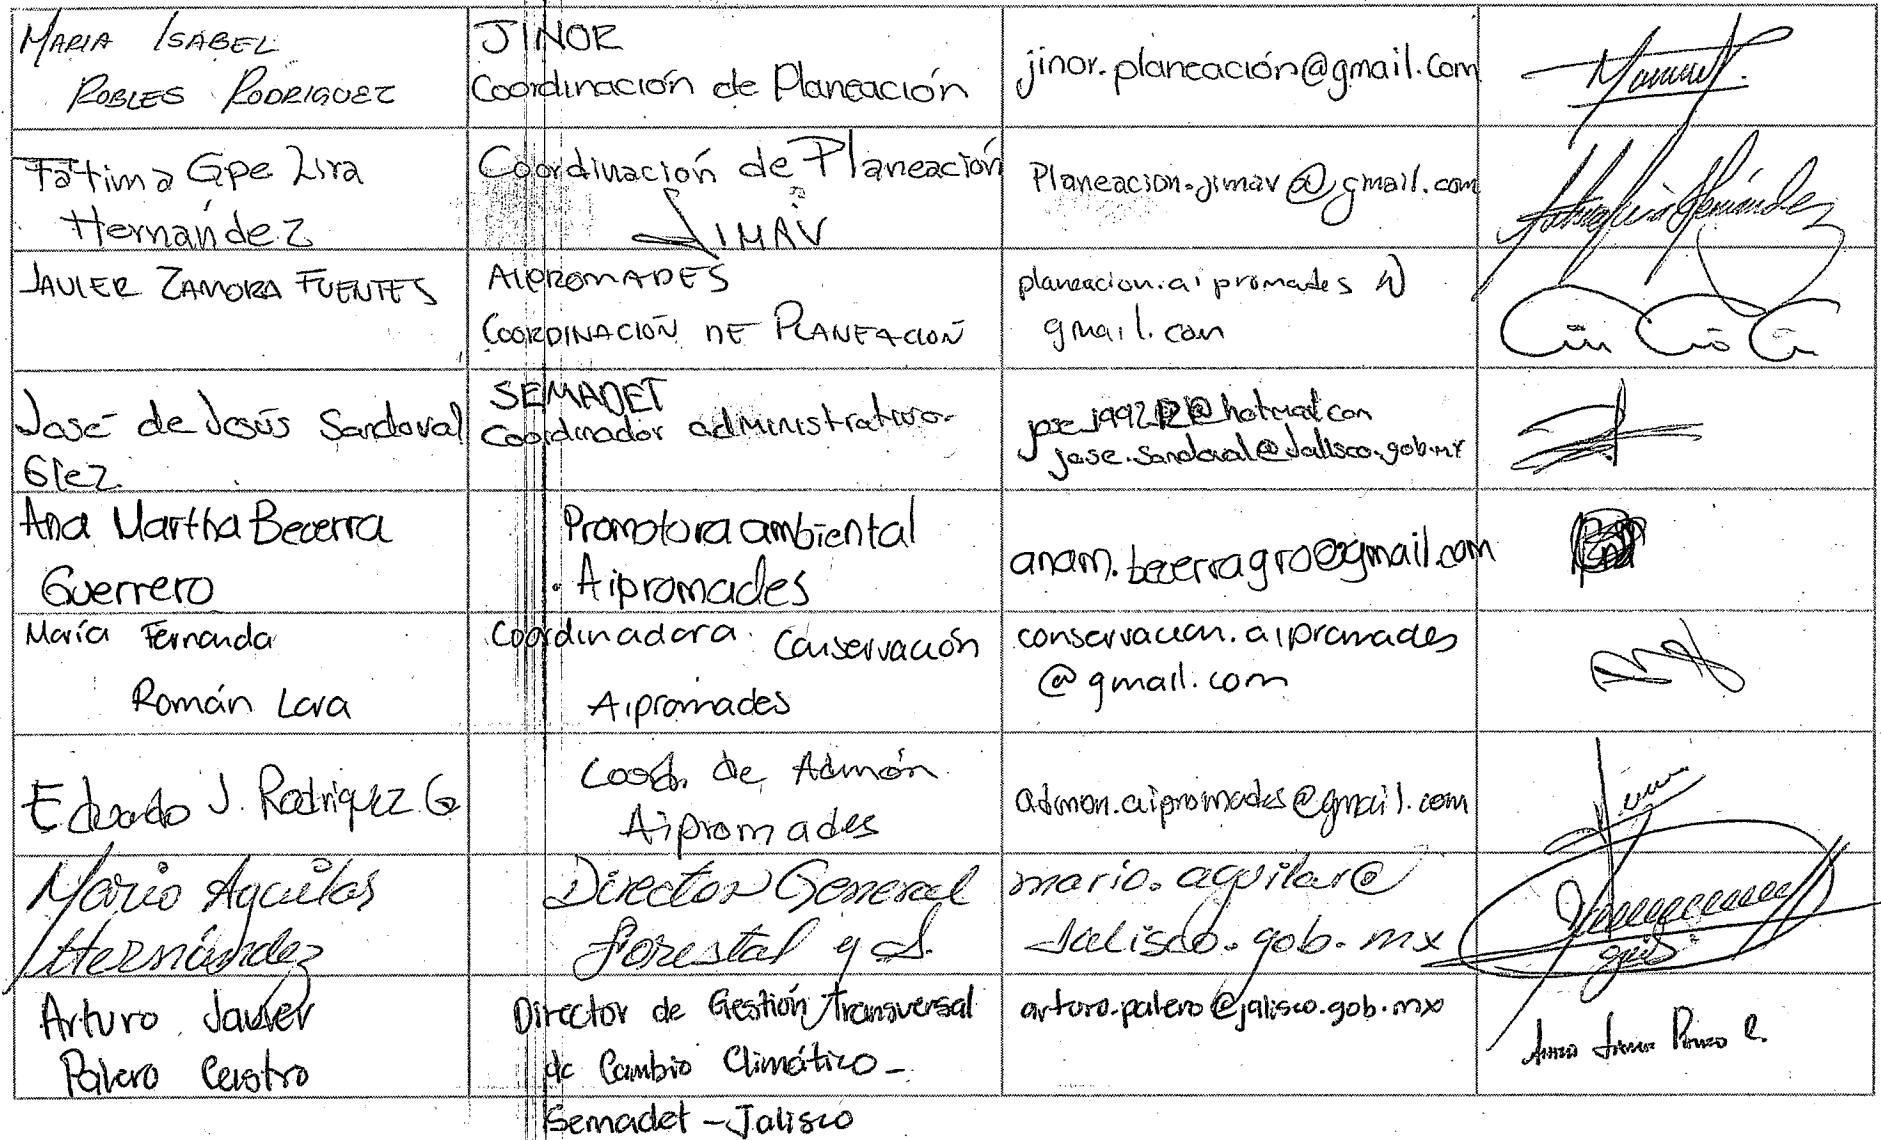 MARIA ISABEL
ROBLES RODRIGUEZ
JINOR
Coordinación de Planeación
jinor.planeación@gmail.com
Fátima Gpe Lira
Hernández
Coordinación de Planeación
JIMAV
Planeacion.jimav@gmail.com
JAVIER ZAMORA FUENTES
AIPROMADES
COORDINACIÓN DE PLANEACIÓN
planeacion.aipromades @
gmail.com
José de Jesús Sandoval
Glez.
SEMADET
Coordinador administrativo.
jose.sandoval@Jalisco.gob.mx
Ana Martha Becerra
Guerrero
Promotora ambiental
Aipromades
anam.becerragro@gmail.com
María Fernanda
Román Lara
Coordinadora Conservación
Aipromades
conservacion.aipromades
@gmail.com
Eduardo J. Rodriguez G
Coord. de Admón
Aipromades
admon.aipromades@gmail.com
Mario Aguilar
Hernández
Director General
Forestal y S.
mario.aguilar@
Jalisco.gob.mx
Arturo Javier
Palero Castro
Director de Gestión Transversal
de Cambio Climático -
Semadet - Jalisco
arturo.palero@jalisco.gob.mx